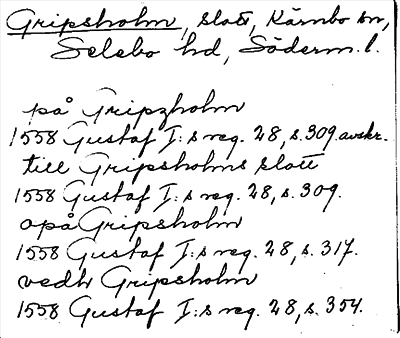 Gripsholm, slott, Kärnbo sn,
Selebo hd, Söderm. l.
på Gripzholm
1558 Gustaf I:s reg. 28, s. 309. avskr.
till Gripsholms slott
1558 Gustaf I:s reg. 28, s. 309.
opå Gripsholm
1558 Gustaf I:s reg. 28, s. 317.
vedh Gripsholm
1558 Gustaf I:s reg. 28, s. 354.